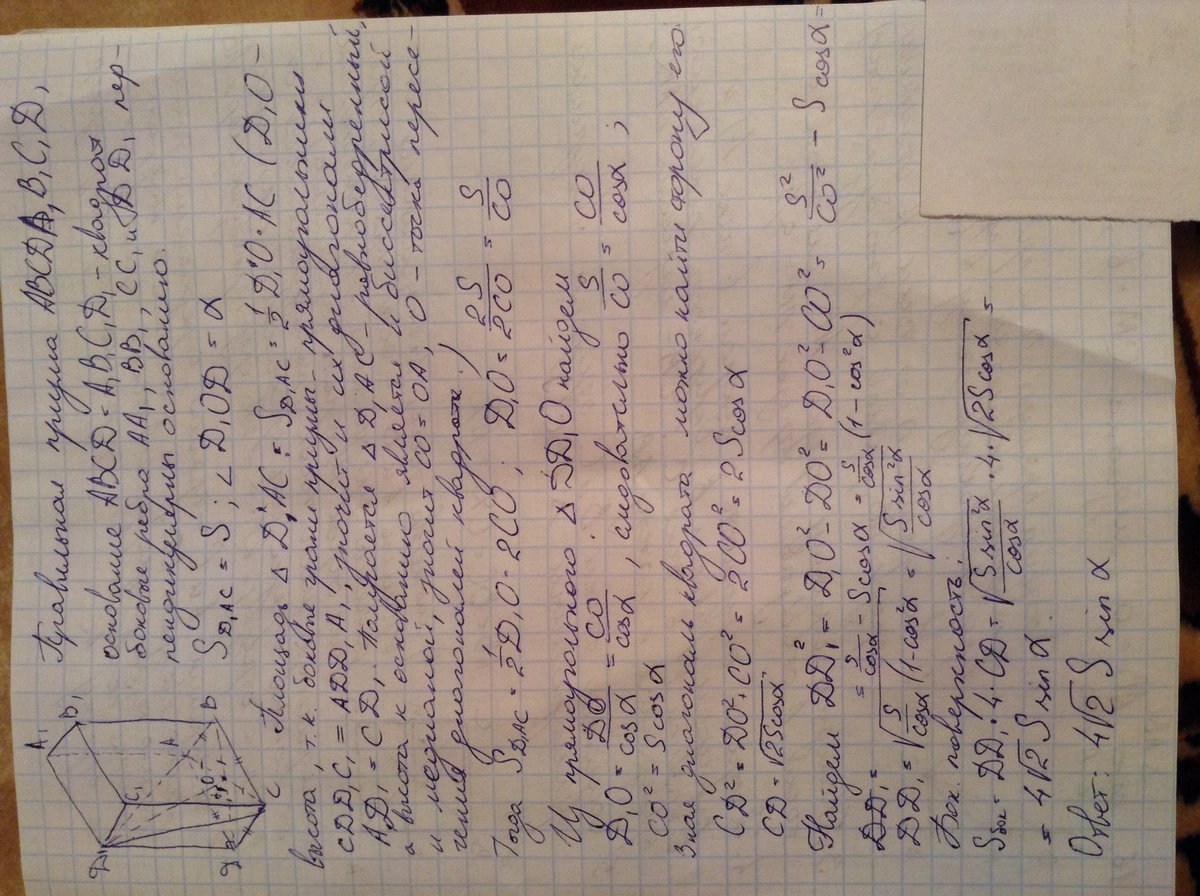 Правильная призма ABCDA₁B₁C₁D₁
основание ABCD = A₁B₁C₁D₁ - квадрат
боковые ребра AA₁, BB₁, CC₁ и DD₁ пер-
пендикулярны основанию.
S D₁AC = S ; ∠ D₁OD = α
A₁
B₁
D₁
C₁
A
B
O
α
D
C
Площадь Δ D₁AC = S D₁AC = 1/2 D₁O · AC (D₁O -
высота, т.к. боковые грани призмы - прямоугольники
CDD₁C₁ = ADD₁A₁, значит и их диагонали
AD₁ = CD₁. Получается Δ D₁AC - равнобедренный,
а высота к основанию является и биссектрисой
и медианой, значит CO = OA, O - точка пересе-
чения диагоналей квадрата.)
Тогда S D₁AC = 1/2 D₁O · 2CO ; D₁O = 2S/2CO = S/CO
Из прямоугольного Δ DD₁O найдем
D₁O = DO/cosα = CO/cosα , следовательно S/CO = CO/cosα ;
CO² = S cosα
Зная диагональ квадрата можно найти сторону его
CD² = DO² + CO² = 2CO² = 2S cosα
CD = √2Scosα
Найдем DD₁² = D₁O² - DO² = D₁O² - CO² = S²/CO² - S cosα =
= S/cosα - S cosα = S/cosα (1 - cos²α)
DD₁ = √S/cosα (1-cos²α) = √S sin²α/cosα
Бок. поверхность:
S бок = DD₁ · 4 · CD = √S sin²α/cosα · 4 · √2S cosα =
= 4√2 S sin α.
Ответ: 4√2 S sin α